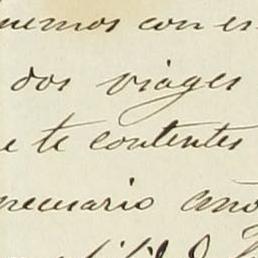 nemos con es
dos viages
e te contentes
necesario año